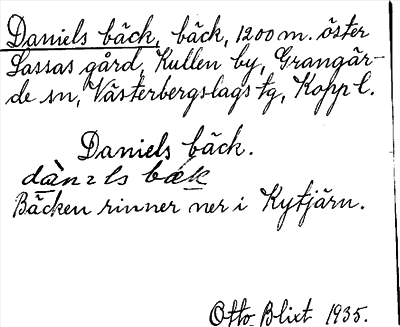 Daniels bäck, bäck, 1200 m. öster
Lassas gård, Kullen by, Grangär-
de sn, Västerbergslags tg, Kopp-l.
Daniels bäck.
dànɛls bäk
Bäcken rinner ner i Kytjärn.
Otto Blixt 1935.